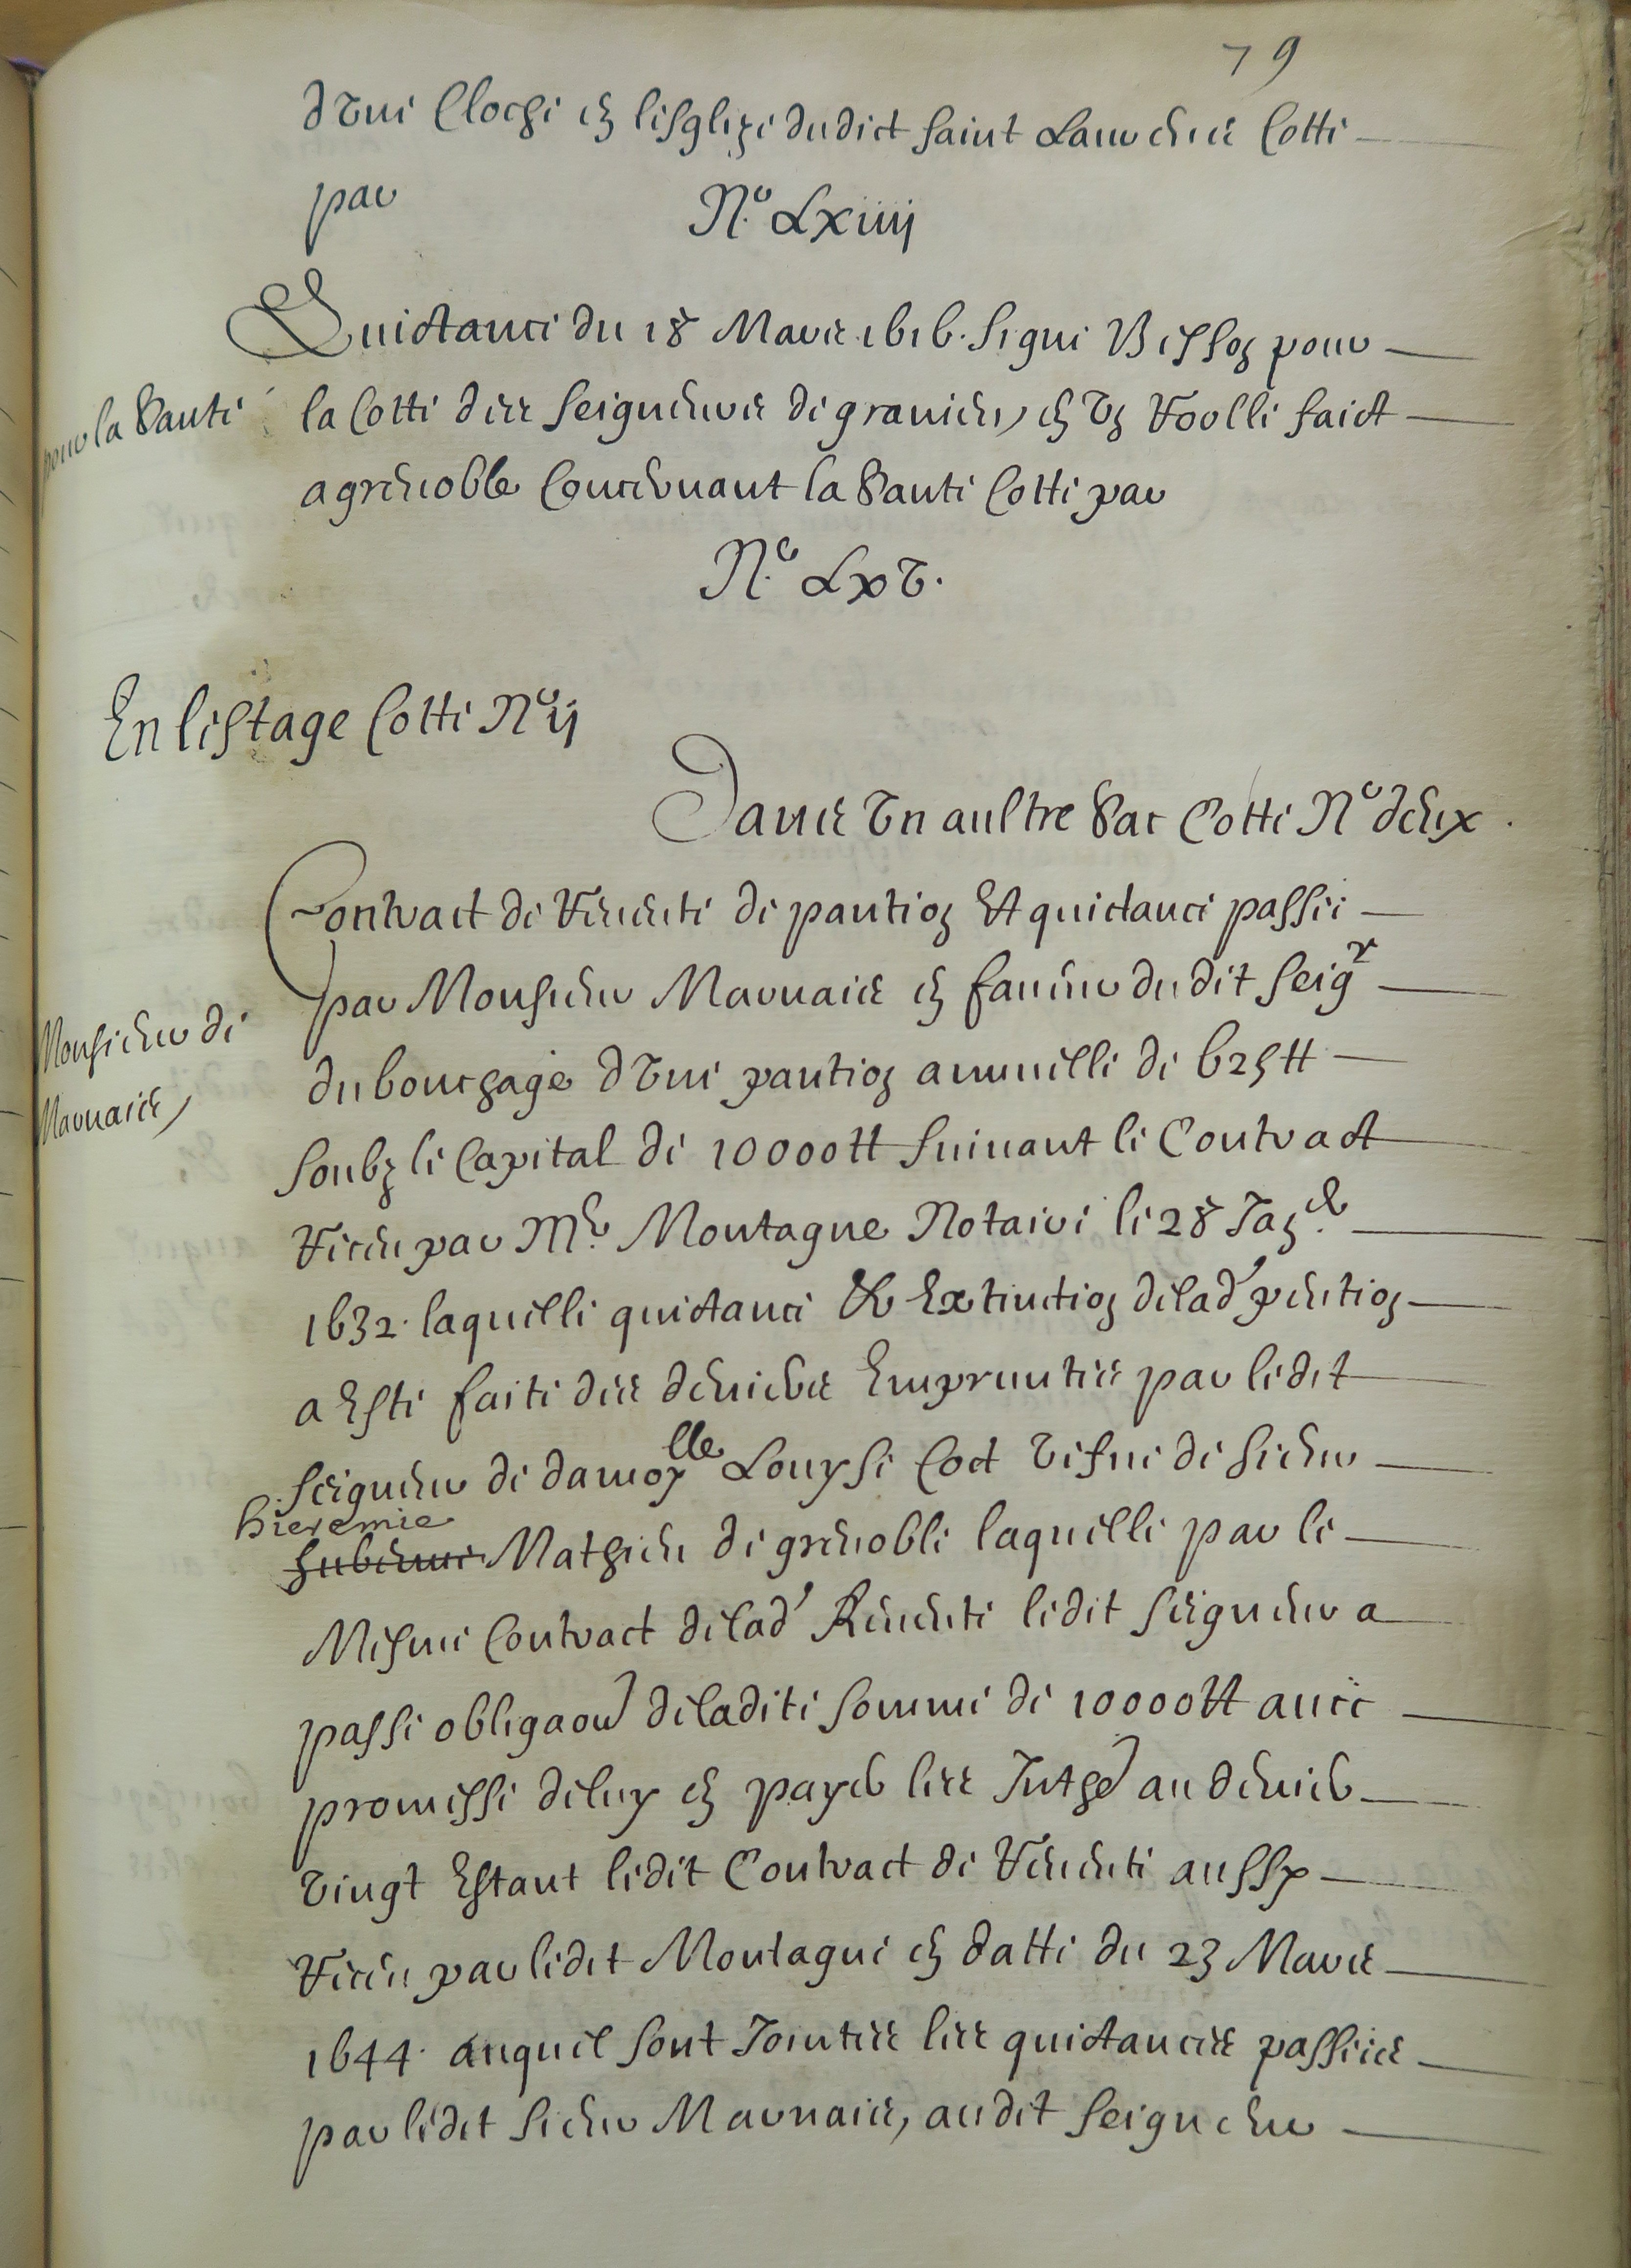 79
d'une Cloche en lesglize dudict saint Laurens Cotte
par
N.º Lxiiij
Quictance du 18 Mars 1616. signe Bisson pour
pour la Santé
la Cotte des seigneurs de granieu, en un Roolle faict
a grenoble Concernant la Santé Cotte par
N.º Lxv.
En lestage Cotte Nº ij
Dans un aultre Sac Cotte Nº deux.
Contract de Revente de pantion Et quictance passee
par Monsieur Marnais en faveur dudit seigr
Monsieur de
Marnais,
du bouchage d'une pantion annuelle de 625 tt
soubz le Capital de 10000 tt suivant le Contract
Receu par Me. Montagne Notaire le 28 Janer.
1632. laquelle quictance & Extinction de lad' pention
a Esté faite des deniers Empruntes par ledit
seigneur de damoylle Louyse Coct vefve de sieur
hieremie
Mathieu de grenoble laquelle par le
Mesme Contract de lad' Revente ledit seigneur a
passé obligaon de ladite somme de 10000 tt avec
promesse de luy en payer les Inthe au denier
vingt Estant ledit Contract de Revente aussy
Receu par ledit Montagne en datte du 23 Mars
1644. auquel sont Jointes les quictances passees
par ledit sieur Marnais, audit seigneur